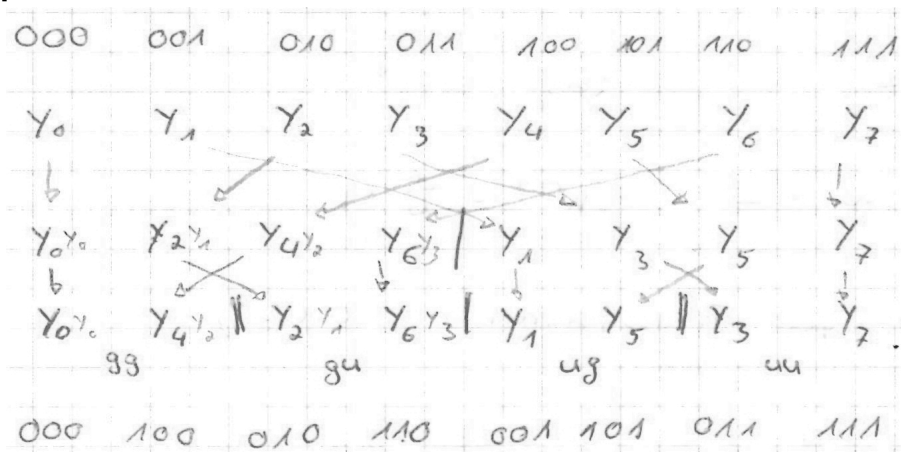 000 001 010 011 100 101 110 111
Y0 Y1 Y2 Y3 Y4 Y5 Y6 Y7
Y0 Y0 Y2 Y1 Y4 Y2 Y6 Y3 Y1 Y3 Y5 Y7
Y0 Y0 Y4 Y2 Y2 Y1 Y6 Y3 Y1 Y5 Y3 Y7
gg gu ug uu
000 100 010 110 001 101 011 111